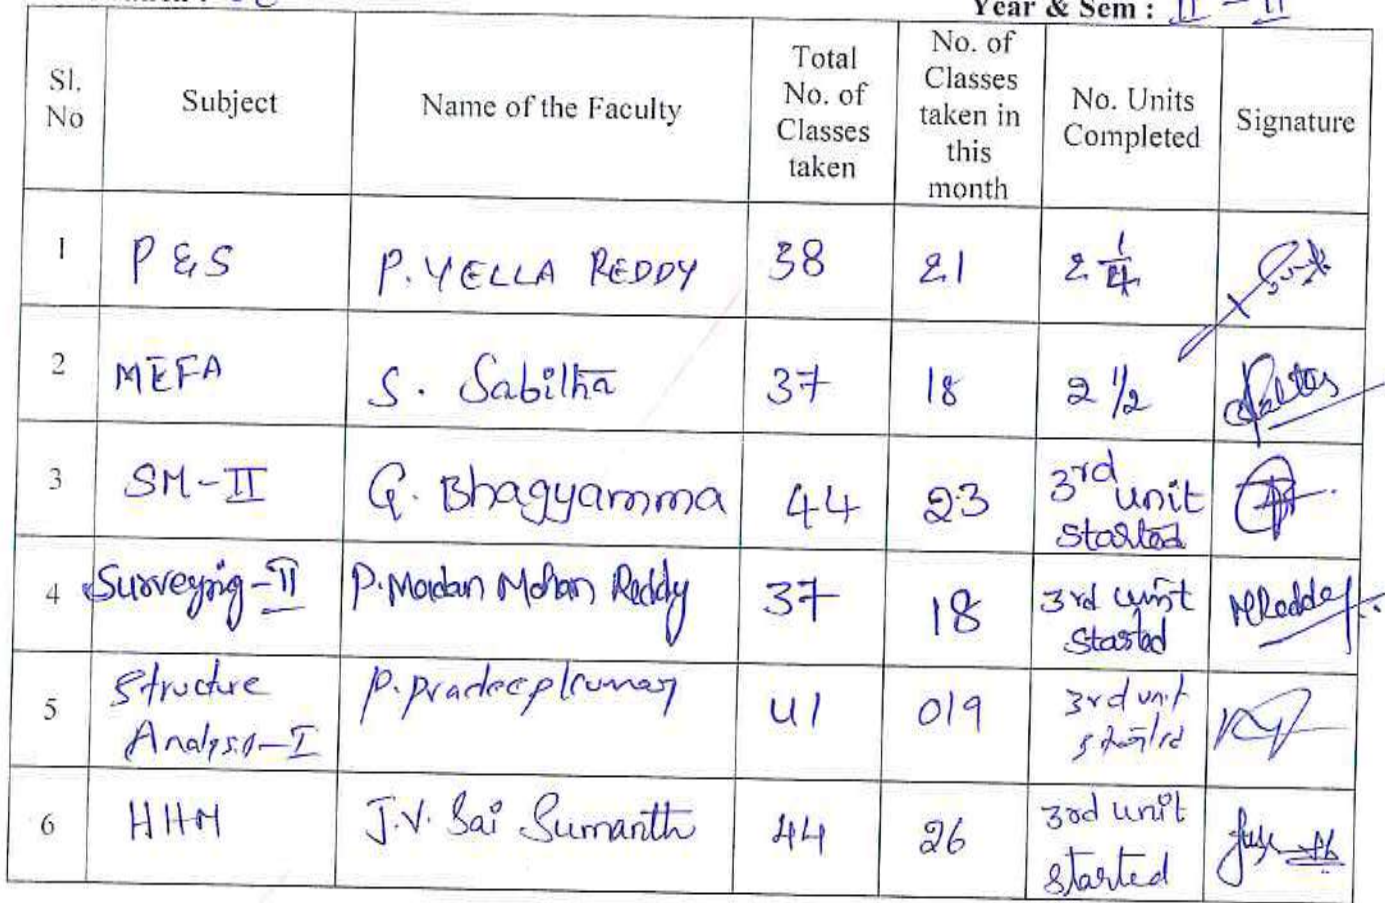 Year & Sem : II - II
Sl. No | Subject | Name of the Faculty | Total No. of Classes taken | No. of Classes taken in this month | No. Units Completed | Signature
1 | P & S | P. YELLA REDDY | 38 | 21 | 2 1/4
2 | MEFA | S. Sabitha | 37 | 18 | 2 1/2
3 | SM-II | G. Bhagyamma | 44 | 23 | 3rd unit started
4 | Surveying-II | P. Madan Mohan Reddy | 37 | 18 | 3rd unit started | MReddy
5 | Structure Analysis-I | P. Pradeepkumar | 41 | 019 | 3rd unit started
6 | HHM | J.V. Sai Sumanth | 44 | 26 | 3rd unit started